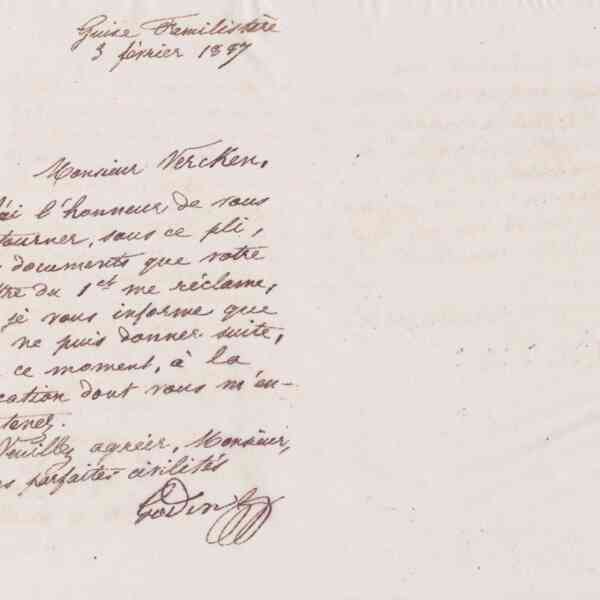 Guise Familistère
3 février 1887
Monsieur Vercken,
'ai l'honneur de vous
tourner, sous ce pli,
documents que votre
tre du 1er me réclame,
je vous informe que
ne puis donner suite,
ce moment, à la
cation dont vous m'en-
tenez.
Veuillez agréer, Monsieur,
es parfaites civilités
Godin